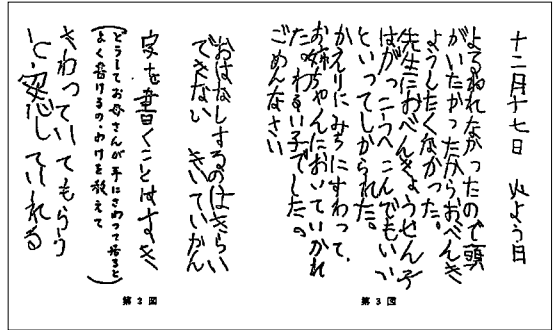 十二月十七日 火よう日
よるねれなかったので頭
がいたかったからおべんき
ょうしたくなかった。
先生におべんきょうせん子
はがっこうへこんでもいい
といってしかられた。
かえりにみちにすわって、
お姉ちゃんにおいていかれ
た。わるい子でした。
ごめんなさい
第3図
おはなしするのはきらい
できない きいていかん
字を書くことはすき
(どうしてお母さんが手にさわって居ると
よく書けるの、わけを教えて)
さわっていてもらう
と、安心していれる
第2図